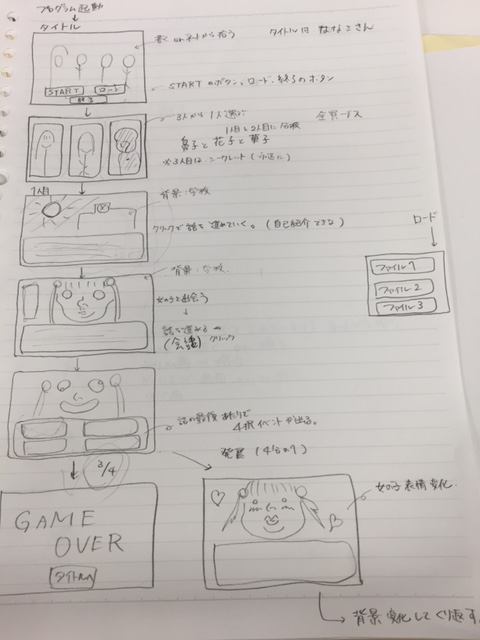 プログラム起動
タイトル
タイトルは ななこさん
START
ロード
終了
STARTのボタン、ロード、終了のボタン
3人から1人選ぶ
1人目と2人目に分岐
鼻子と花子と菓子
※3人目はシークレット
1人目
背景:学校
クリックで話を進めていく。(自己紹介できな)
ロード
ファイル1
ファイル2
ファイル3
背景:学校
女の子と出会う
話を進める
(会話)クリック
話の最後あたりで
4択イベントが出る。
3/4
発展(4分の1)
GAME
OVER
タイトルへ
女の子 表情変化
背景変化してくり返す